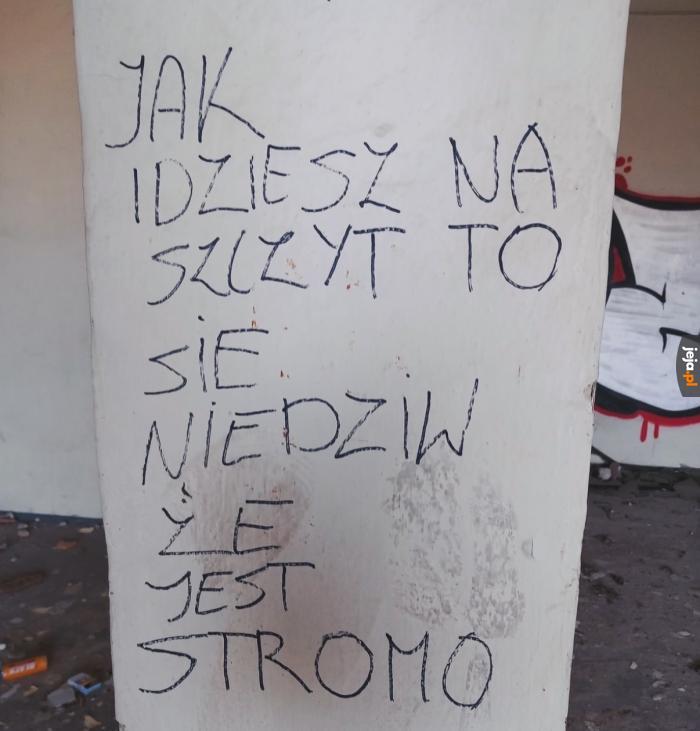 JAK
IDZIESZ NA
SZCZYT TO
SiE
NiEDZiW
ŻE
JEST
STROMO
jeja.pl